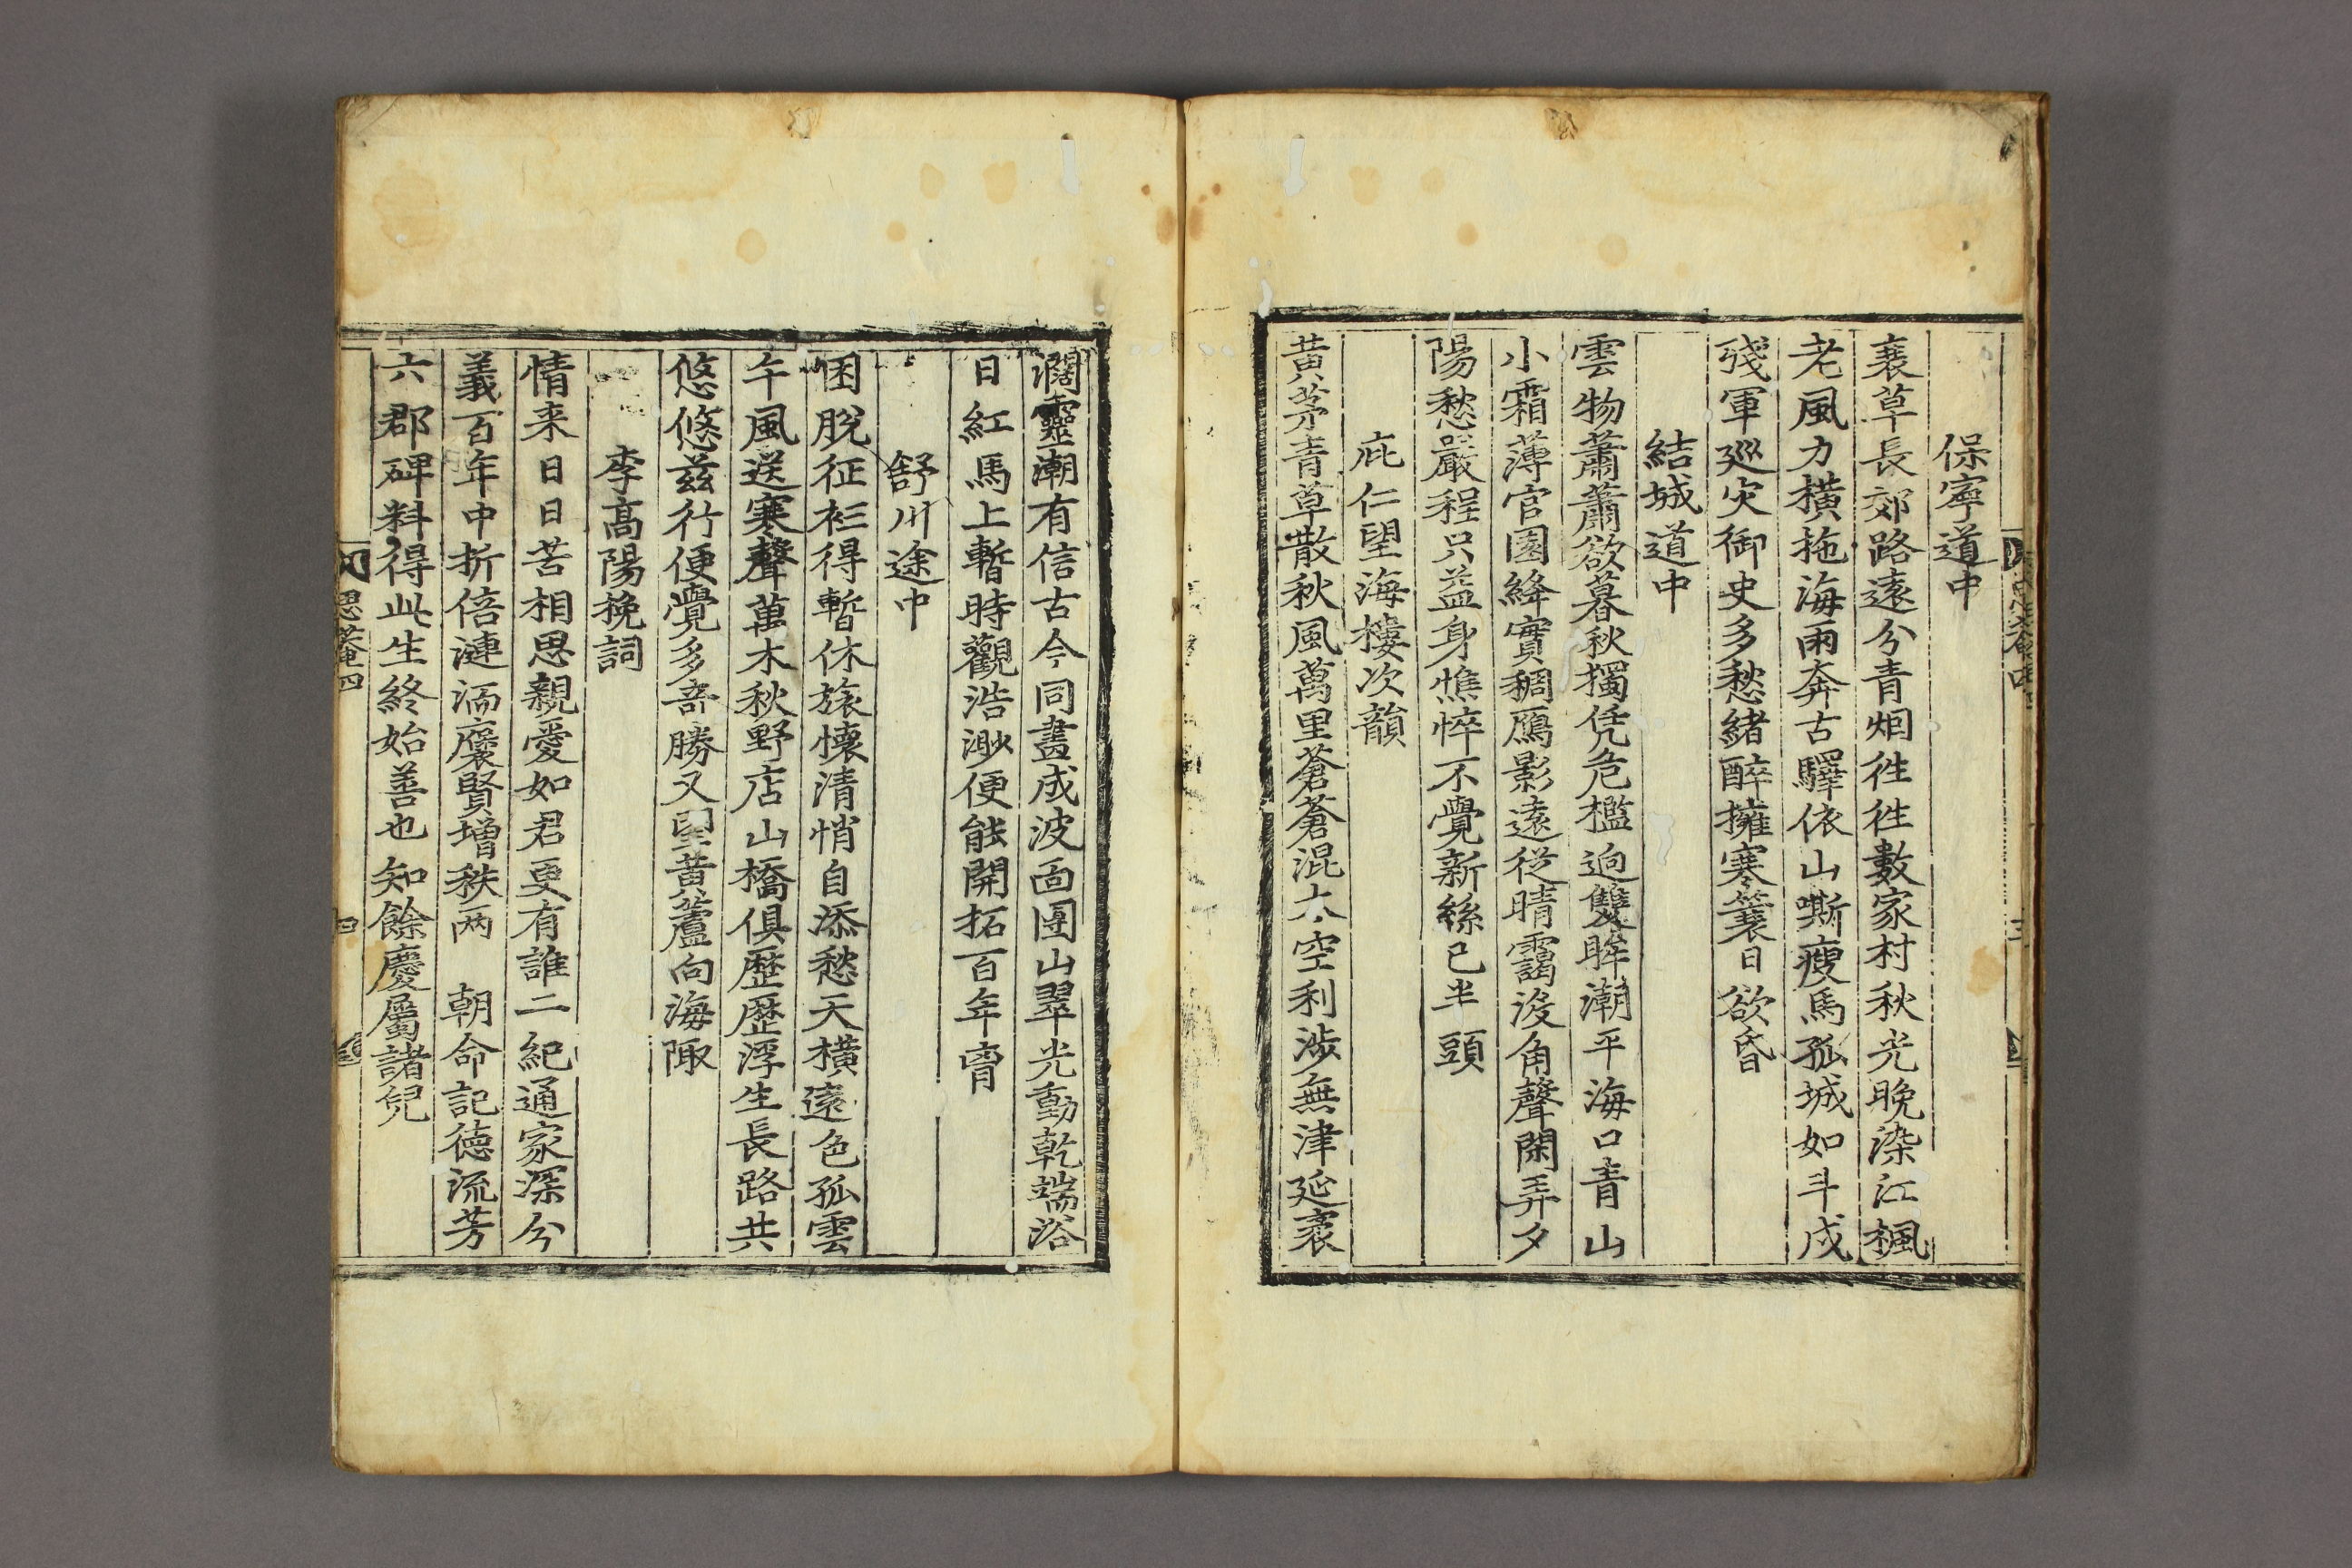 保寧道中
衰草長郊路遠分青烟徃徃數家村秋光晚染江楓
老風力橫拖海雨奔古驛依山嘶瘦馬孤城如斗戍
殘軍廵灾御史多愁緖醉擁寒簑日欲昏
結城道中
雲物蕭蕭欲暮秋獨凭危檻逈雙眸潮平海口靑山
小霜薄官園絳實稠鴈影遠從晴靄沒角聲閑弄夕
陽愁嚴程只益身憔悴不覺新絲已半頭
庇仁望海樓次韻
黃茅靑草散秋風萬里蒼蒼混太空利涉無津延袤
濶靈潮有信古今同畫成波面團山翠光動乾端浴
日紅馬上暫時觀浩渺便能開拓百年胷
舒川途中
困脫征衫得暫休旅懷清悄自添愁天橫遠色孤雲
午風送寒聲萬木秋野店山橋俱歷歷浮生長路共
悠悠茲行便覺多奇勝又望黃蘆向海陬
李高陽挽詞
情来日日苦相思親愛如君更有誰二紀通家深分
義百年中折倍漣洏褒賢增秩兩 朝命記德流芳
六郡碑料得此生終始善也知餘慶屬諸兒
思菴四
四